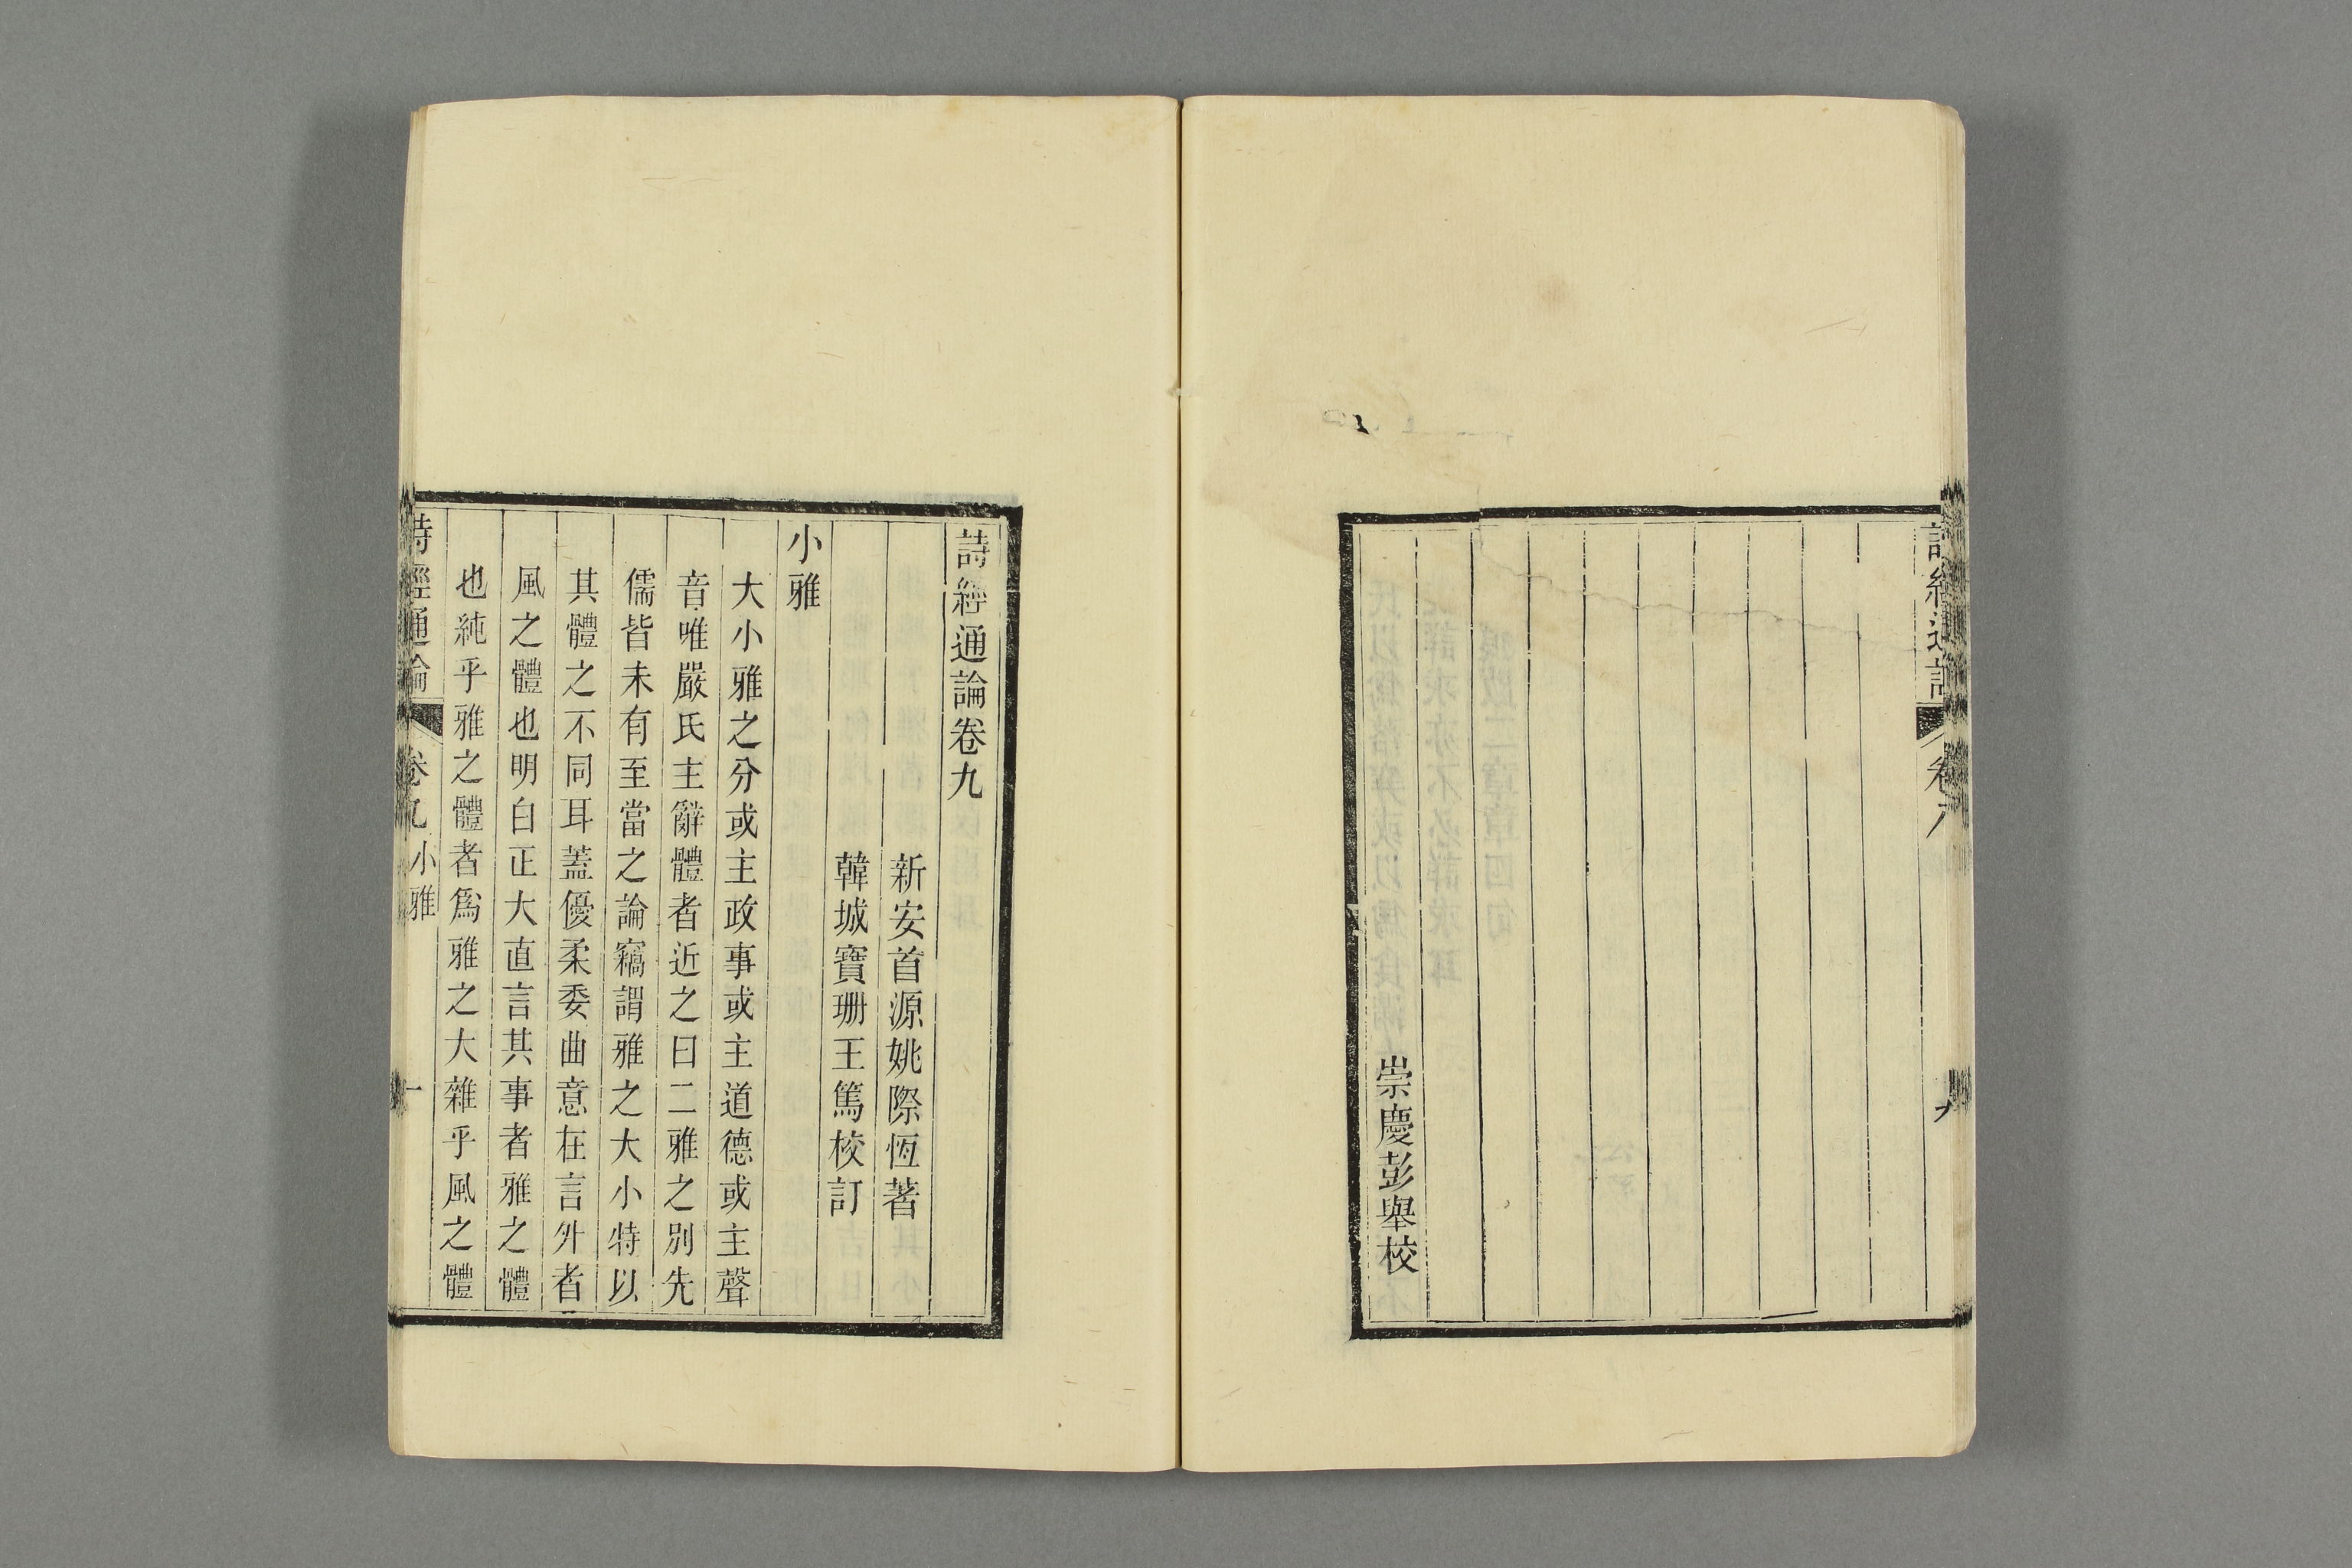 崇慶彭舉校
詩經通論卷九
新安首源姚際恆著
韓城寶珊王篤校訂
小雅
大小雅之分或主政事或主道德或主聲
音唯嚴氏主辭體者近之曰二雅之別先
儒皆未有至當之論竊謂雅之大小特以
其體之不同耳蓋優柔委曲意在言外者
風之體也明白正大直言其事者雅之體
也純乎雅之體者爲雅之大雜乎風之體
詩經通論 卷九 小雅 一